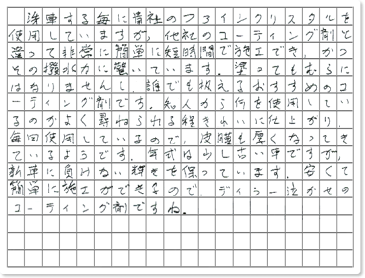 洗車する毎に貴社のつ3インクリスタルを
使用していますが、他社のコーティング剤と
違って非常に簡単に短時間で施工でき、かつ
その撥水力に驚いています。塗ってもむらに
はなりませんし、誰でも扱えるおすすめのコ
ーティング剤です。知人から何を使用してい
るのかよく尋ねられる程きれいに仕上がり、
毎回使用しているので、皮膜も厚くなってき
ているようです。年式は少し古い車ですが、
新車に負けない輝きを保っています。安くて
簡単に施工ができるので、ディーラー泣かせの
コーティング剤ですね。